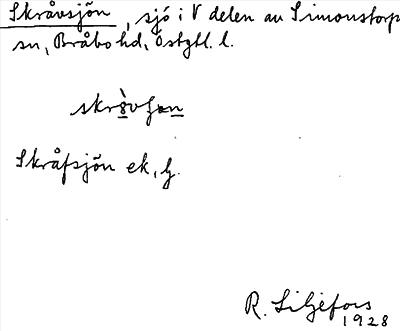 Skråvsjön, sjö i V delen av Simonstorp
sn, Bråbo hd, Östgtl. l.
Skråfsjön ek, G.
R. Liljefors
1928